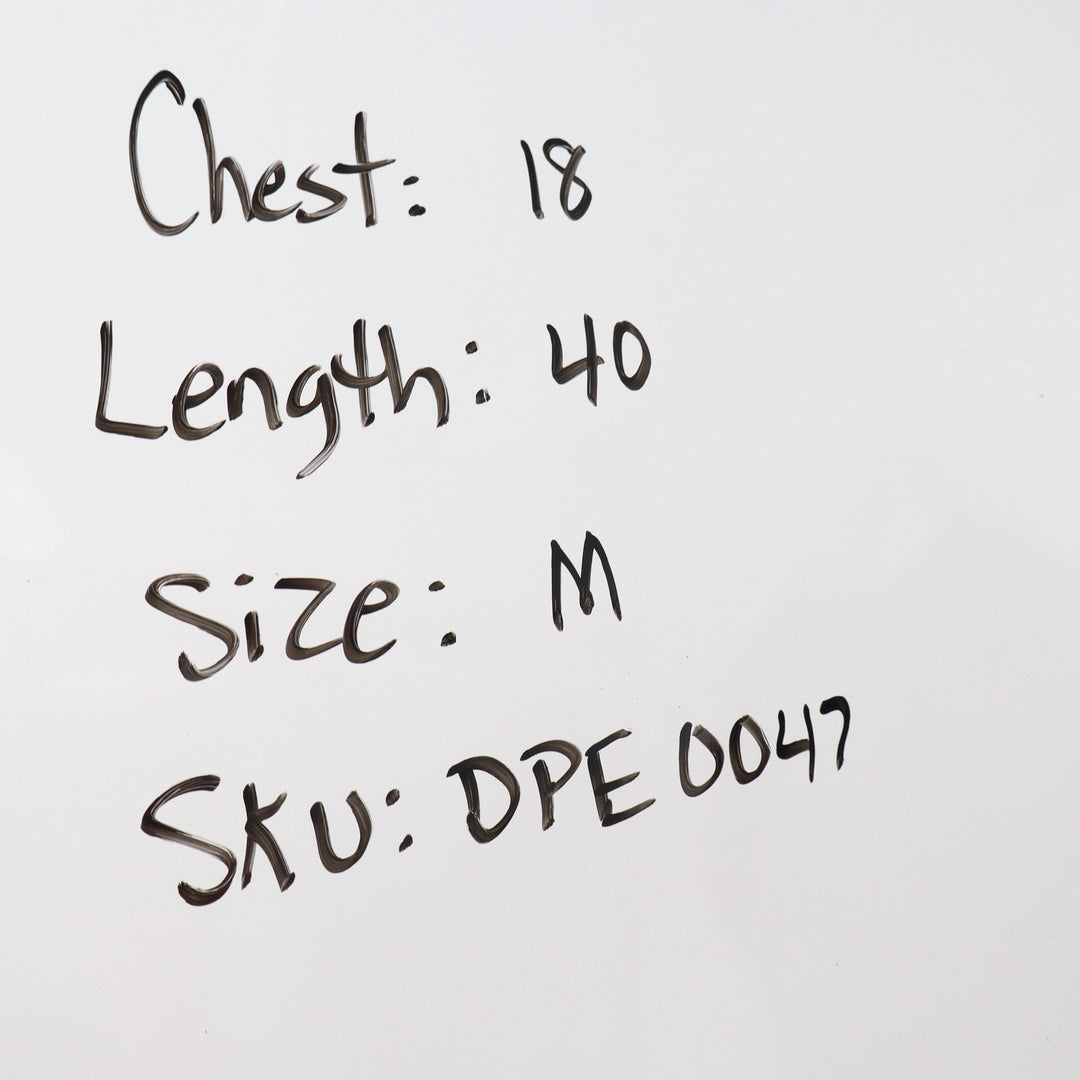 Chest: 18
Length: 40
Size: M
SKU: DPE 0047